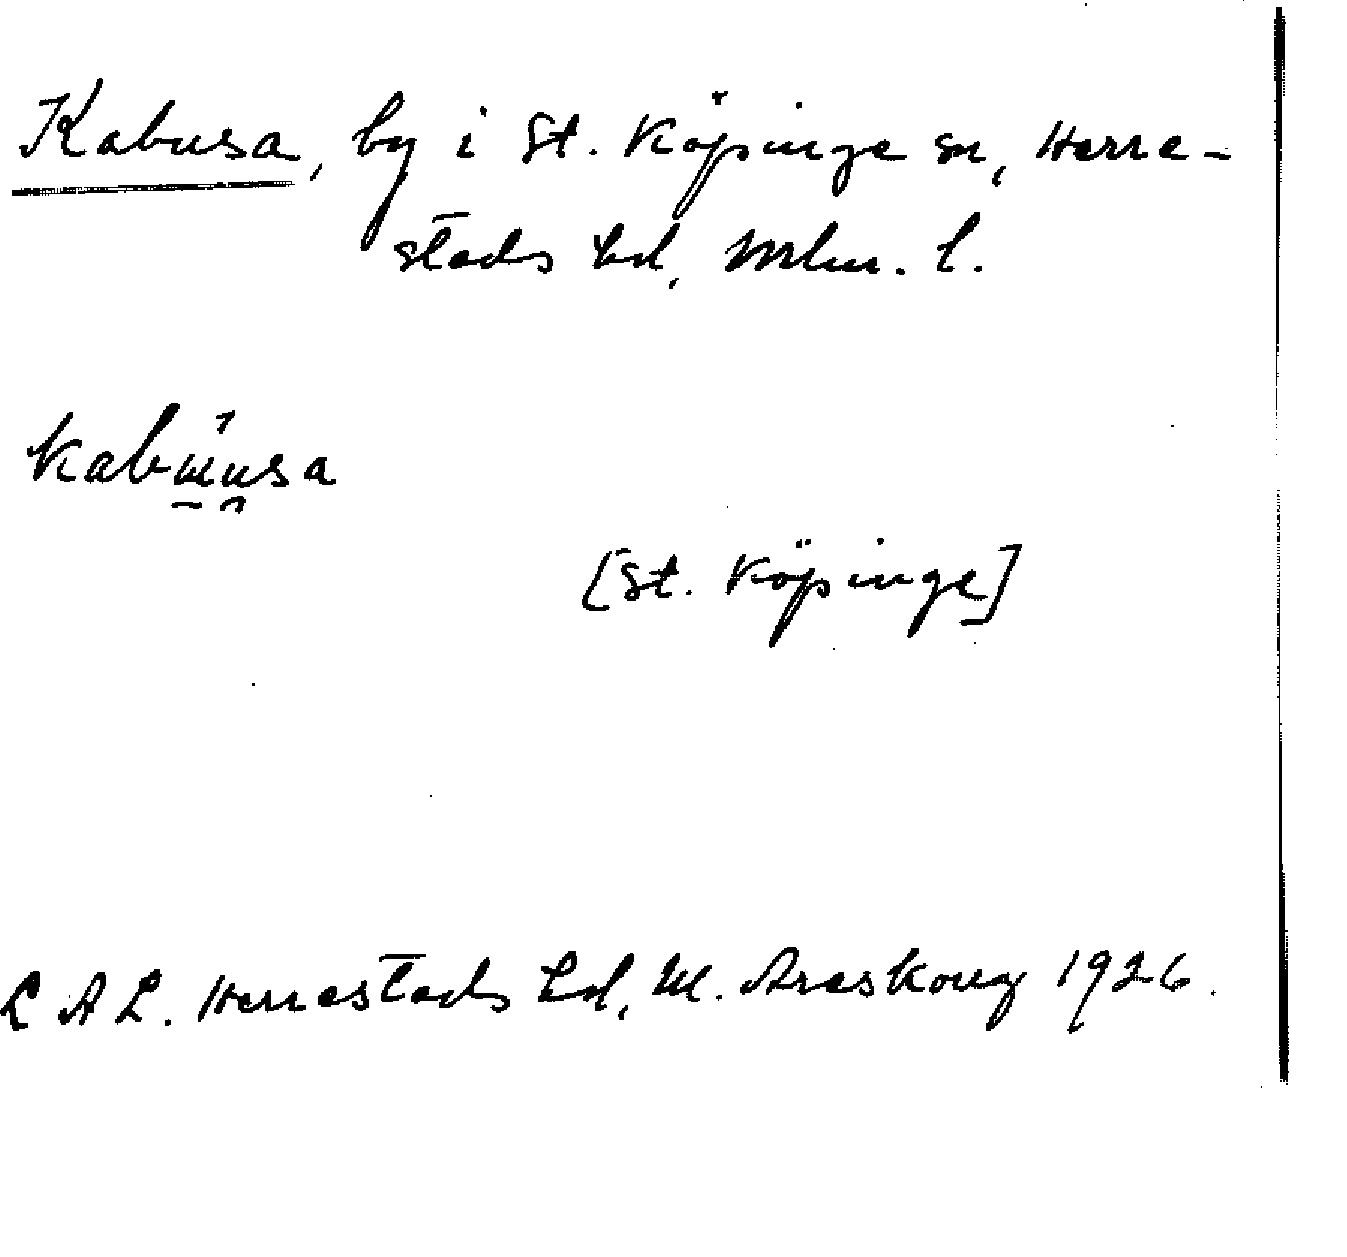 Kabusa, by i St. Köpinge sn, Herre-
stads hd, Mlm. l.
[St. Köpinge]
L A L. Herrestads hd, M. Areskoug 1926.